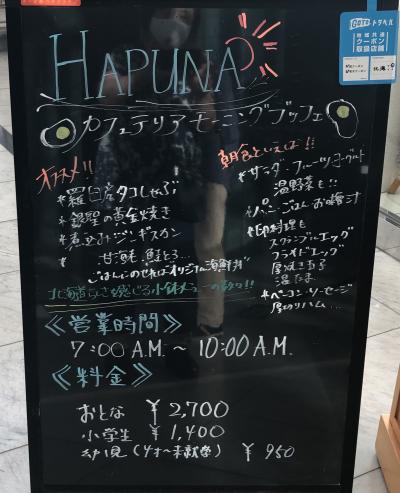 HAPUNA
カフェテリアモーニングブッフェ
オススメ!!
*羅臼産タコしゃぶ
*銀聖の黄金焼き
*煮込みジンギスカン
*甘海老、鮭とろ…
ごはんにのせればオリジナル海鮮丼
北海道らしさを感じる小鉢メニューの数々!!
朝食といえば!!
*サラダ・フルーツ・ヨーグルト
温野菜も!!
*パン・ごはん・お味噌汁
*卵料理も
スクランブルエッグ
フライドエッグ
厚焼き玉子
温たま
*ベーコン・ソーセージ
厚切りハム…
≪営業時間≫
7:00 A.M. ~ 10:00 A.M.
≪料金≫
おとな ¥2,700
小学生 ¥1,400
幼児(4才~未就学) ¥950
GoTo トラベル
地域共通
クーポン
取扱店舗